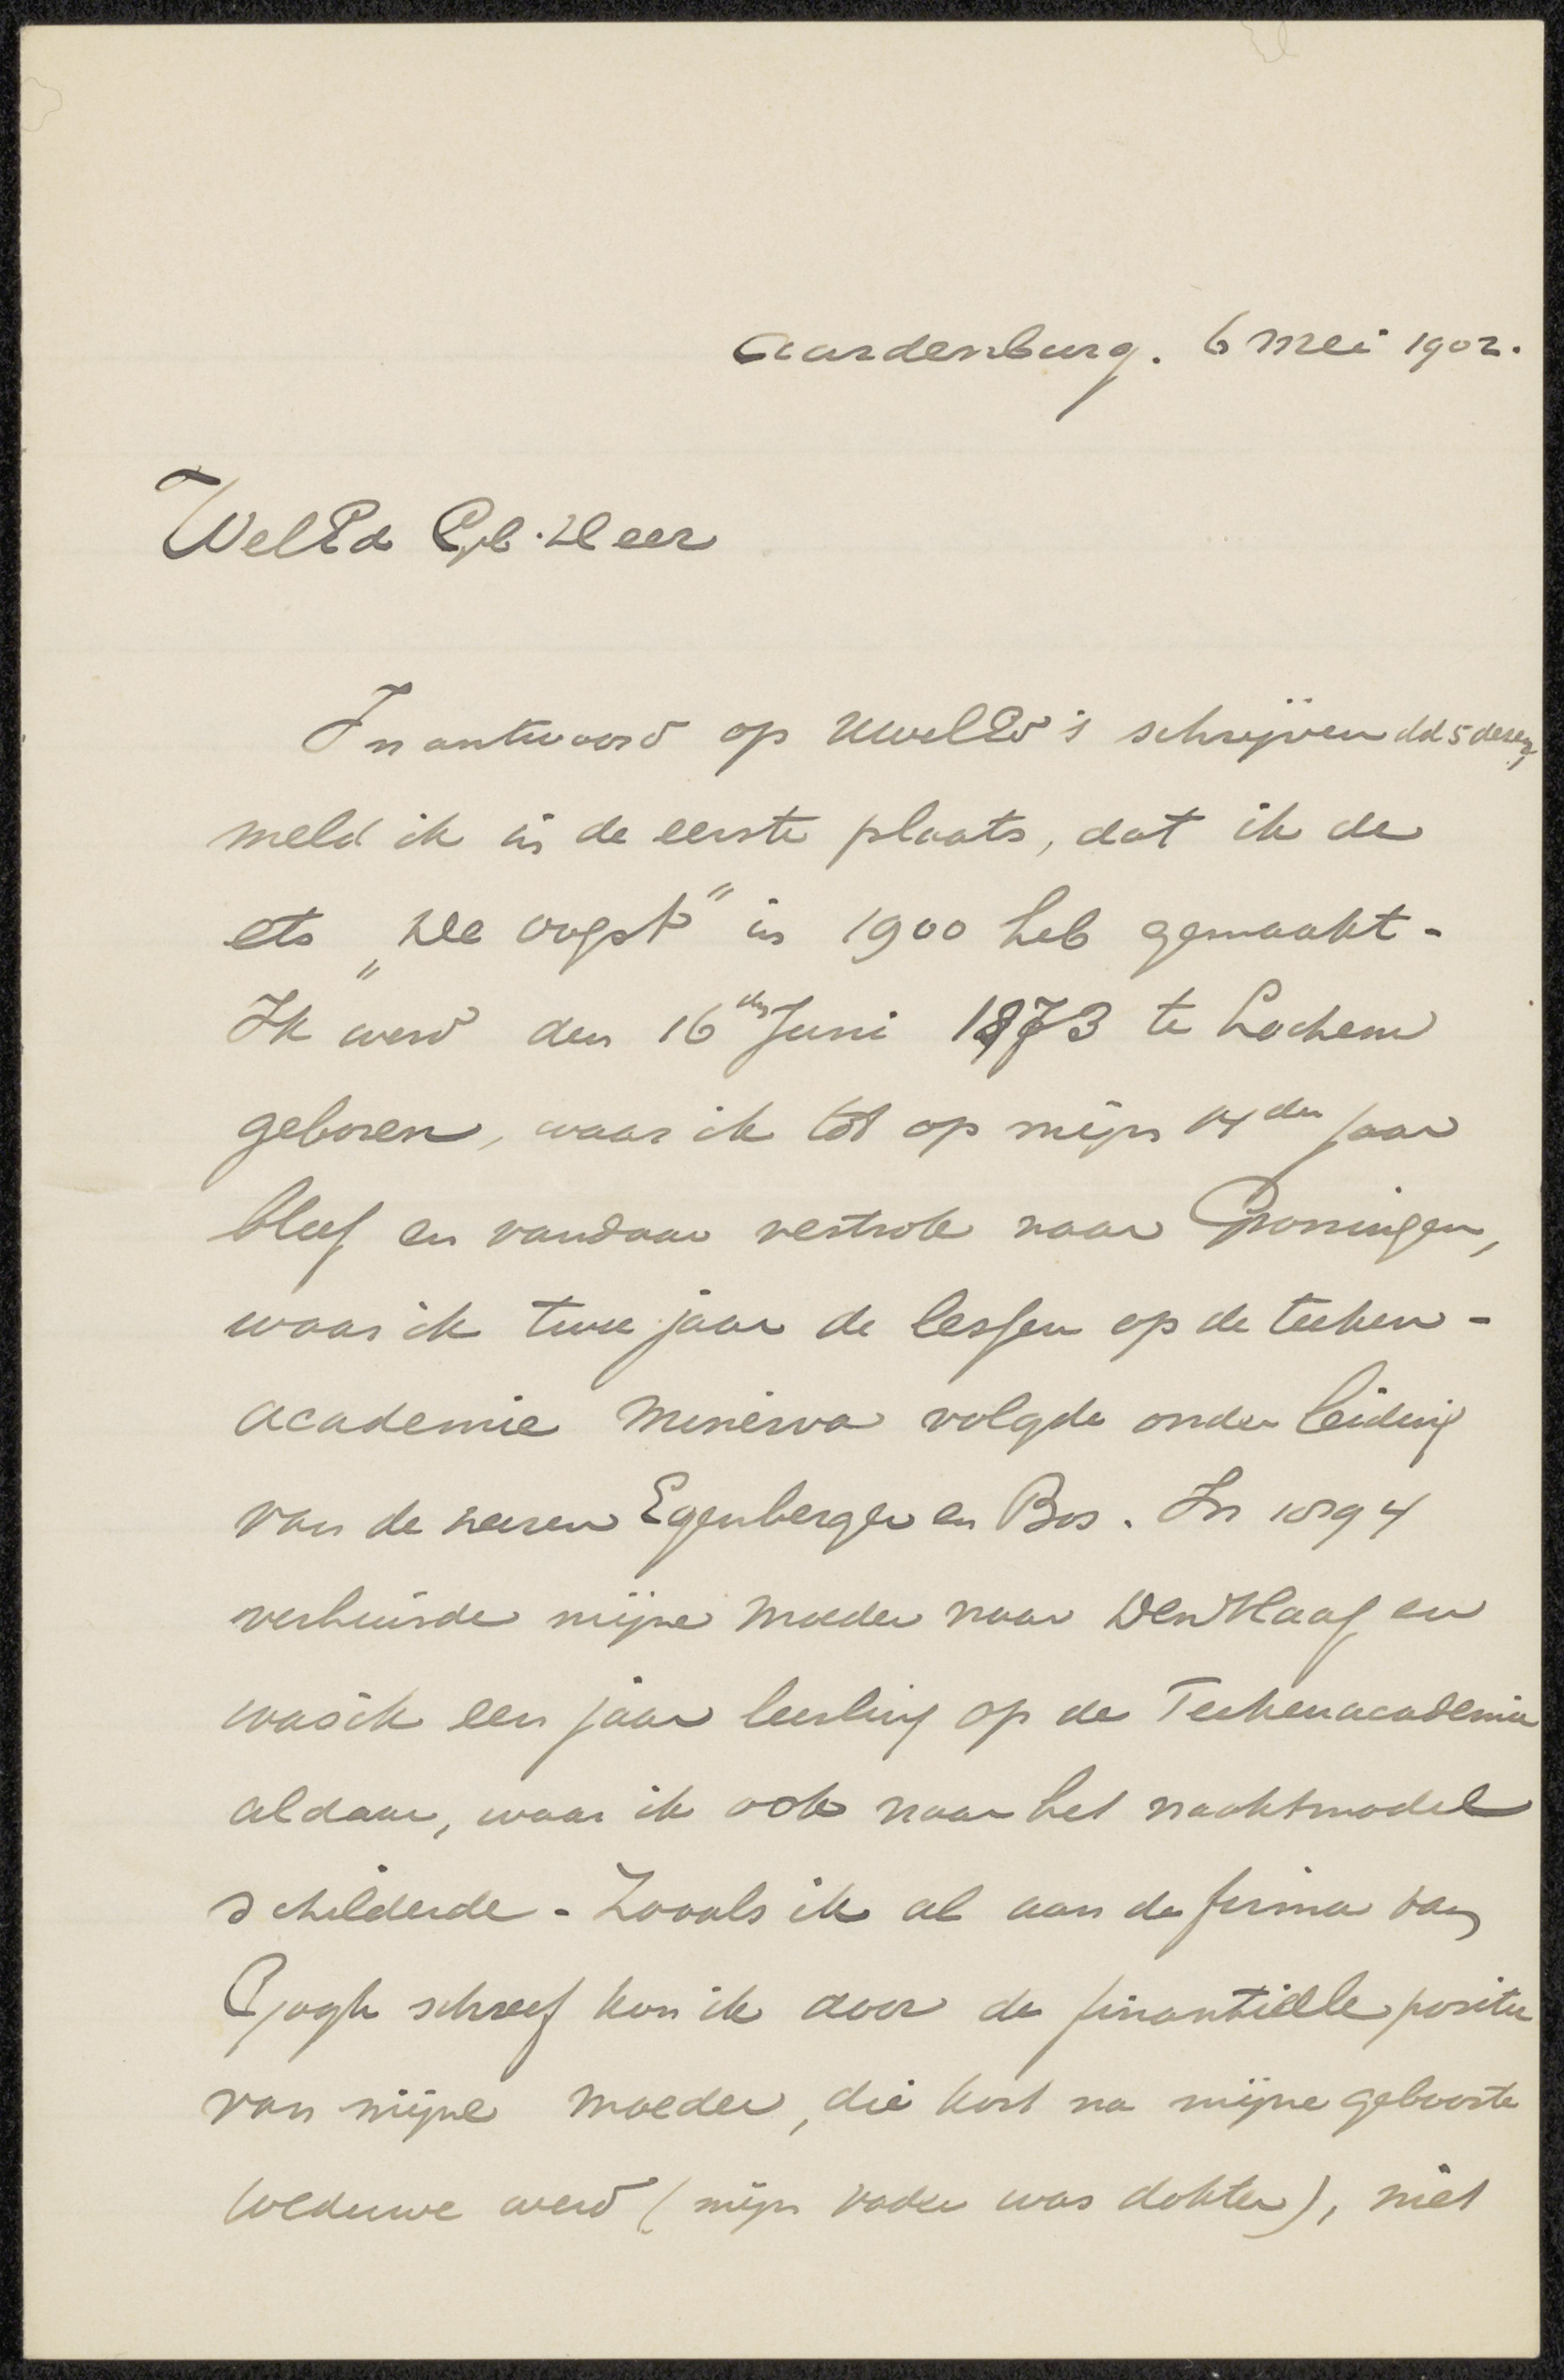 Aardenburg. 6 Mei 1902.
WelEd Geb. Heer
In antwoord op UwelEd's schrijven dd 5 dezer,
meld ik in de eerste plaats, dat ik de
ets „De oogst" in 1900 heb gemaakt.
Ik werd den 16den Juni 1873 te Lochem
geboren, waar ik tot op mijn 14de jaar
bleef en vandaar vertrok naar Groningen,
waar ik twee jaar de lessen op de teeken-
academie Minerva volgde onder leiding
van de heeren Egenberger en Bos. In 1894
verhuisde mijne moeder naar Den Haag en
was ik een jaar leerling op de Teekenacademie
aldaar, waar ik ook naar het nacktmodel
schilderde. Zooals ik al aan de firma van
Gogh schreef kon ik door de finantiëlle positie
van mijne moeder, die kort na mijne geboorte
weduwe werd (mijn vader was dokter), niet